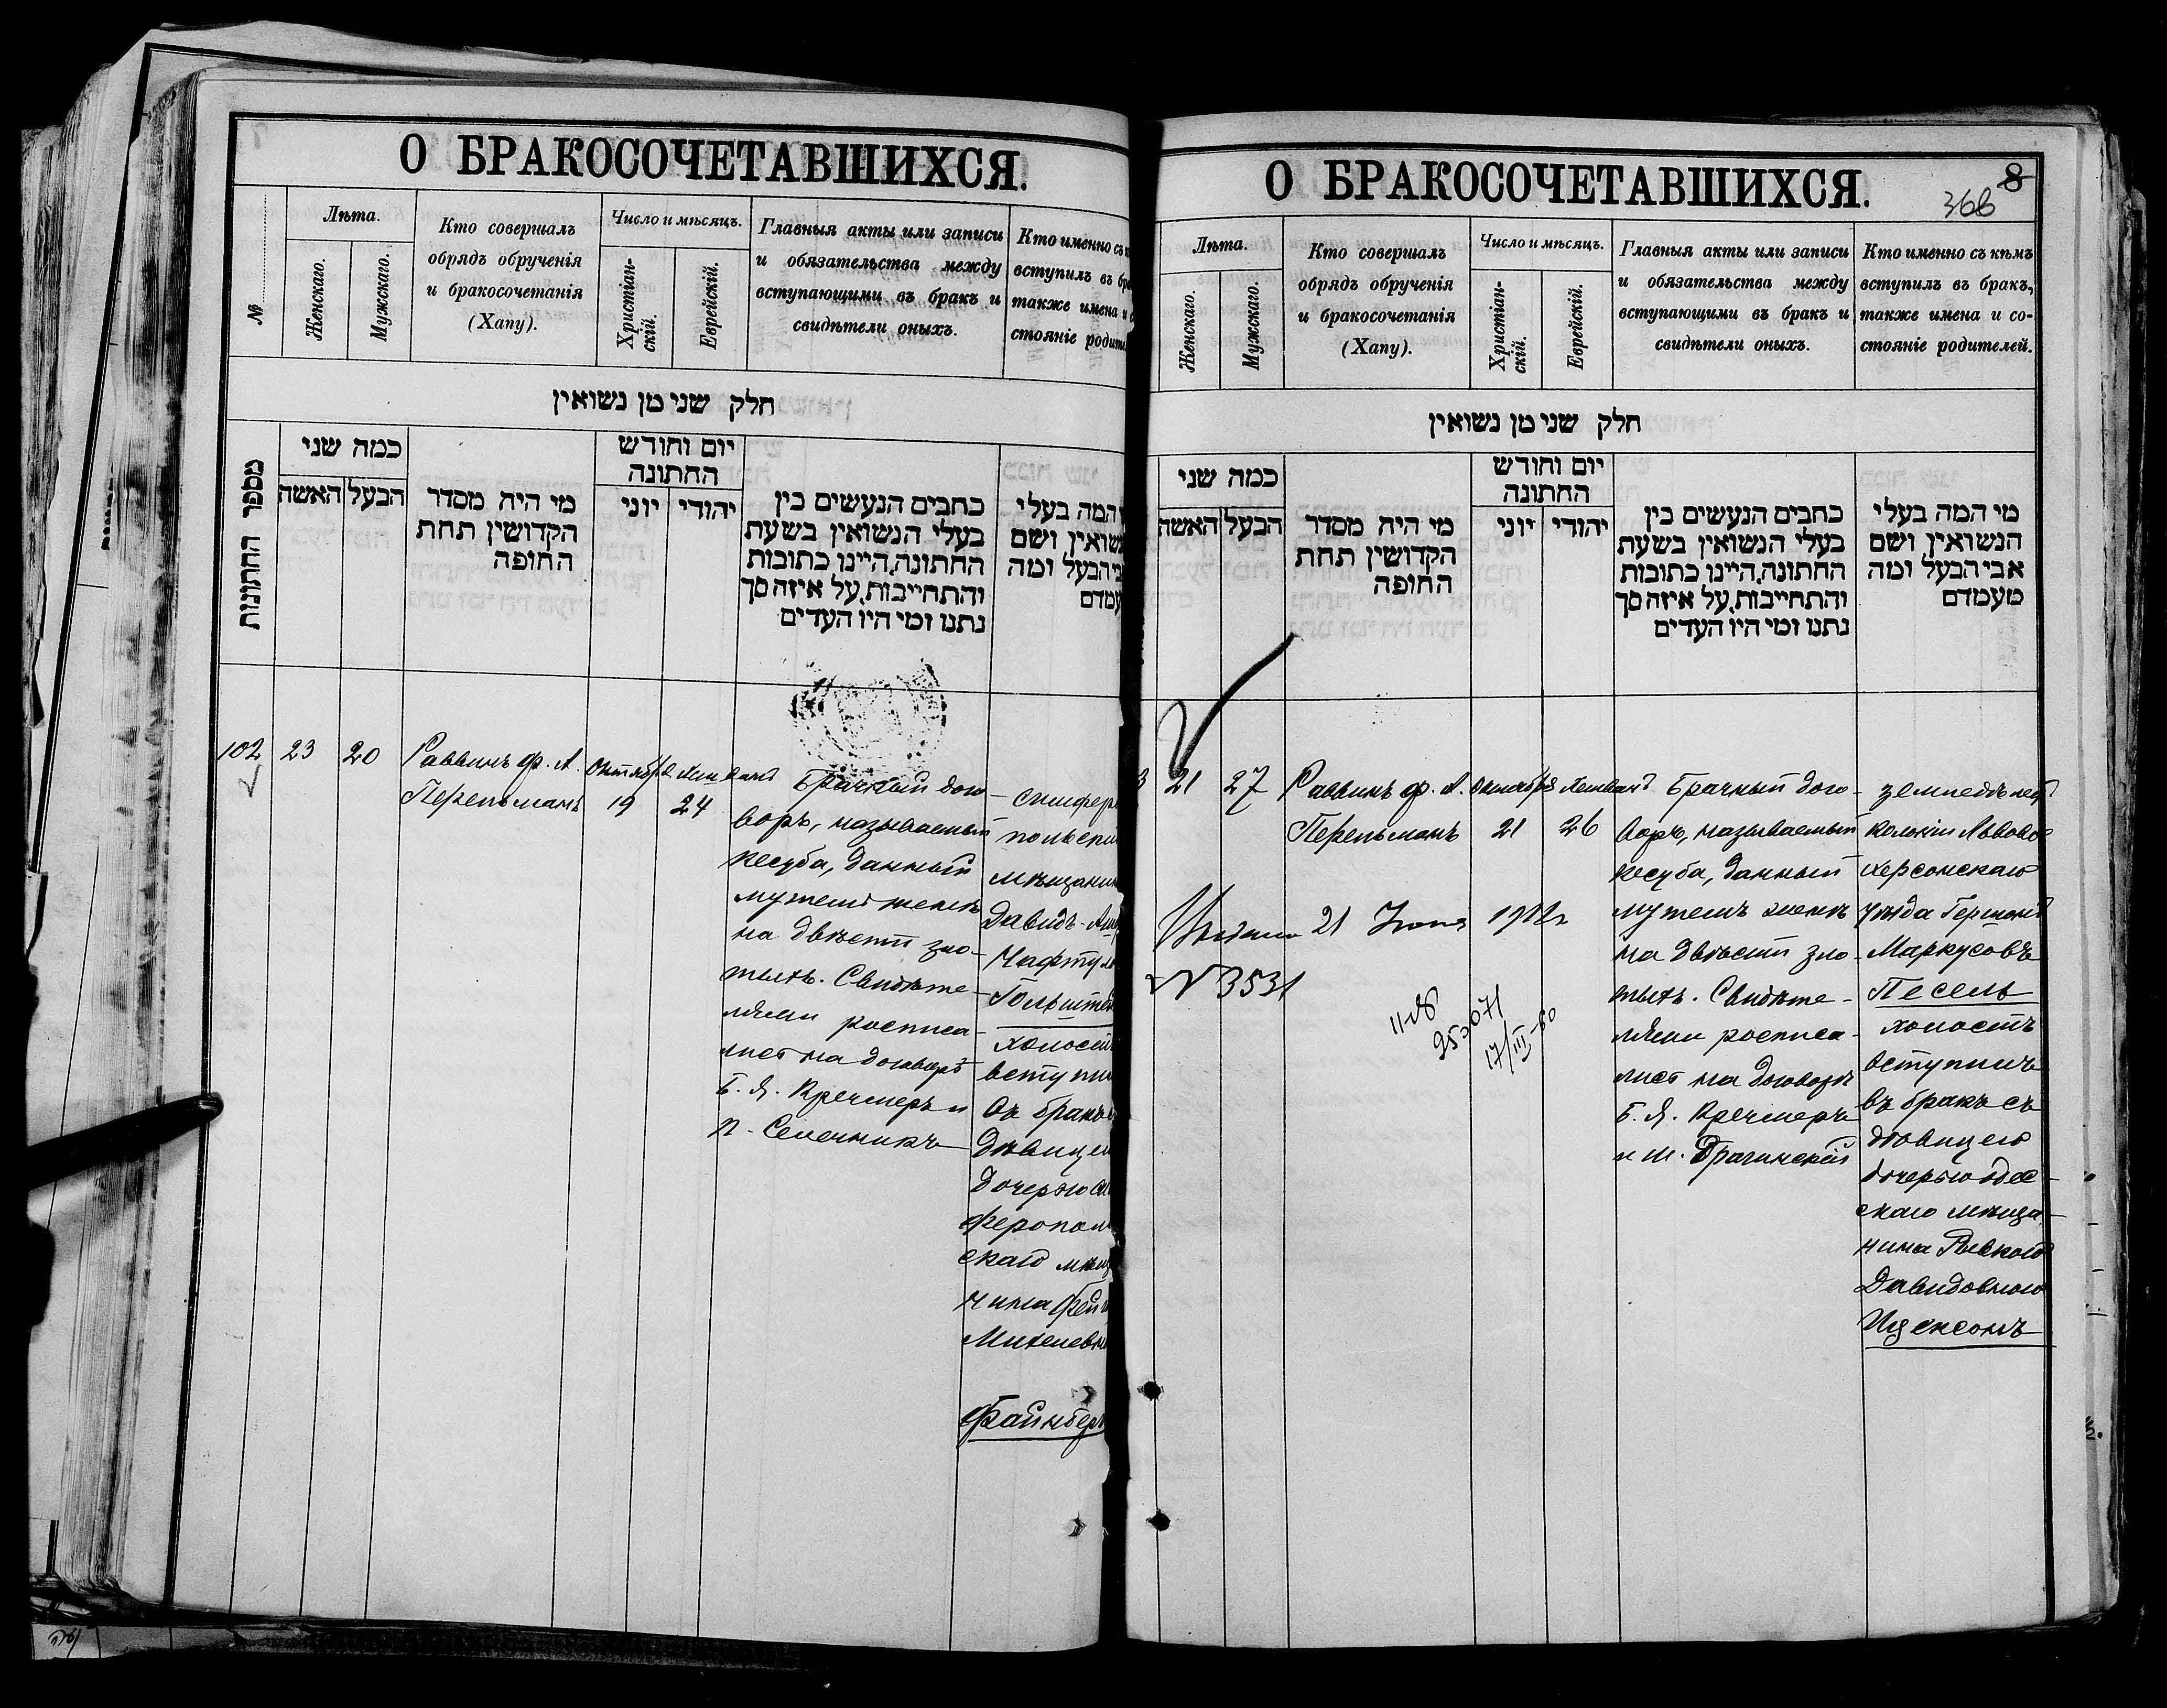 О БРАКОСОЧЕТАВШИХСЯ.
№
Лѣта.
Женскаго.
Мужскаго.
Кто совершалъ
обрядъ обрученія
и бракосочетанія
(Хапу).
Число и мѣсяцъ.
Христіан-
скій.
Еврейскій.
Главныя акты или записи
и обязательства между
вступающими въ бракъ и
свидѣтели оныхъ.
Кто именно съ
вступилъ въ
также имена и
стояніе
חלק שני מן נשואין
מספר החתונות
כמה שני
הבעל
האשה
מי היה מסדר
הקדושין תחת
החופה
יום וחודש
החתונה
יהודי
יוני
כתבים הנעשים בין
בעלי הנשואין בשעת
החתונה, היינו כתובות
והתחייבות, על איזה סך
נתנו ומי היו העדים
המה בעלי
ושם
הבעל ומה
102
23
20
Раввинъ ф. А.
Перельманъ
Октября
19
Хешвана
24
Брачный дого-
воръ, называемый
кесуба, данный
мужемъ женѣ
на двѣсти зло-
тыхъ. Свидѣте-
лями росписа-
лись на договорѣ
Б. Я. Кречмеръ и
Селечникъ
симферо
польскій
мѣщанинъ
Давидъ-
Нафтул
Гольштей
холостъ
вступил
въ бракъ
дѣвицей
дочерью
феропол
скаго мѣща
нина
Михелевн
Файнберг
О БРАКОСОЧЕТАВШИХСЯ.
8
366
Лѣта.
Женскаго.
Мужскаго.
Кто совершалъ
обрядъ обрученія
и бракосочетанія
(Хапу).
Число и мѣсяцъ.
Христіан-
скій.
Еврейскій.
Главныя акты или записи
и обязательства между
вступающими въ бракъ и
свидѣтели оныхъ.
Кто именно съ кѣмъ
вступилъ въ бракъ,
также имена и со-
стояніе родителей.
חלק שני מן נשואין
כמה שני
הבעל
האשה
מי היה מסדר
הקדושין תחת
החופה
יום וחודש
החתונה
יהודי
יוני
כתבים הנעשים בין
בעלי הנשואין בשעת
החתונה, היינו כתובות
והתחייבות, על איזה סך
נתנו ומי היו העדים
מי המה בעלי
הנשואין ושם
אבי הבעל ומה
מעמדם
3
21
27
Раввинъ ф. А.
Перельманъ
Октября
21
Хешвана
26
Брачный дого-
воръ, называемый
кесуба, данный
мужемъ женѣ
на двѣсти зло-
тыхъ. Свидѣте-
лями росписа-
лись на договорѣ
Б. Я. Кречмеръ
и М. Брагинскій
земледѣлецъ
колоніи Львовое
Херсонскаго
уѣзда Германъ
Маркусовъ
Песель
холостъ
вступилъ
въ бракъ съ
дѣвицею
дочерью одес-
скаго мѣща-
нина Ривкою
Давидовною
Ицексонъ
21 1922
№ 3531
11-28
253071
17/III-80